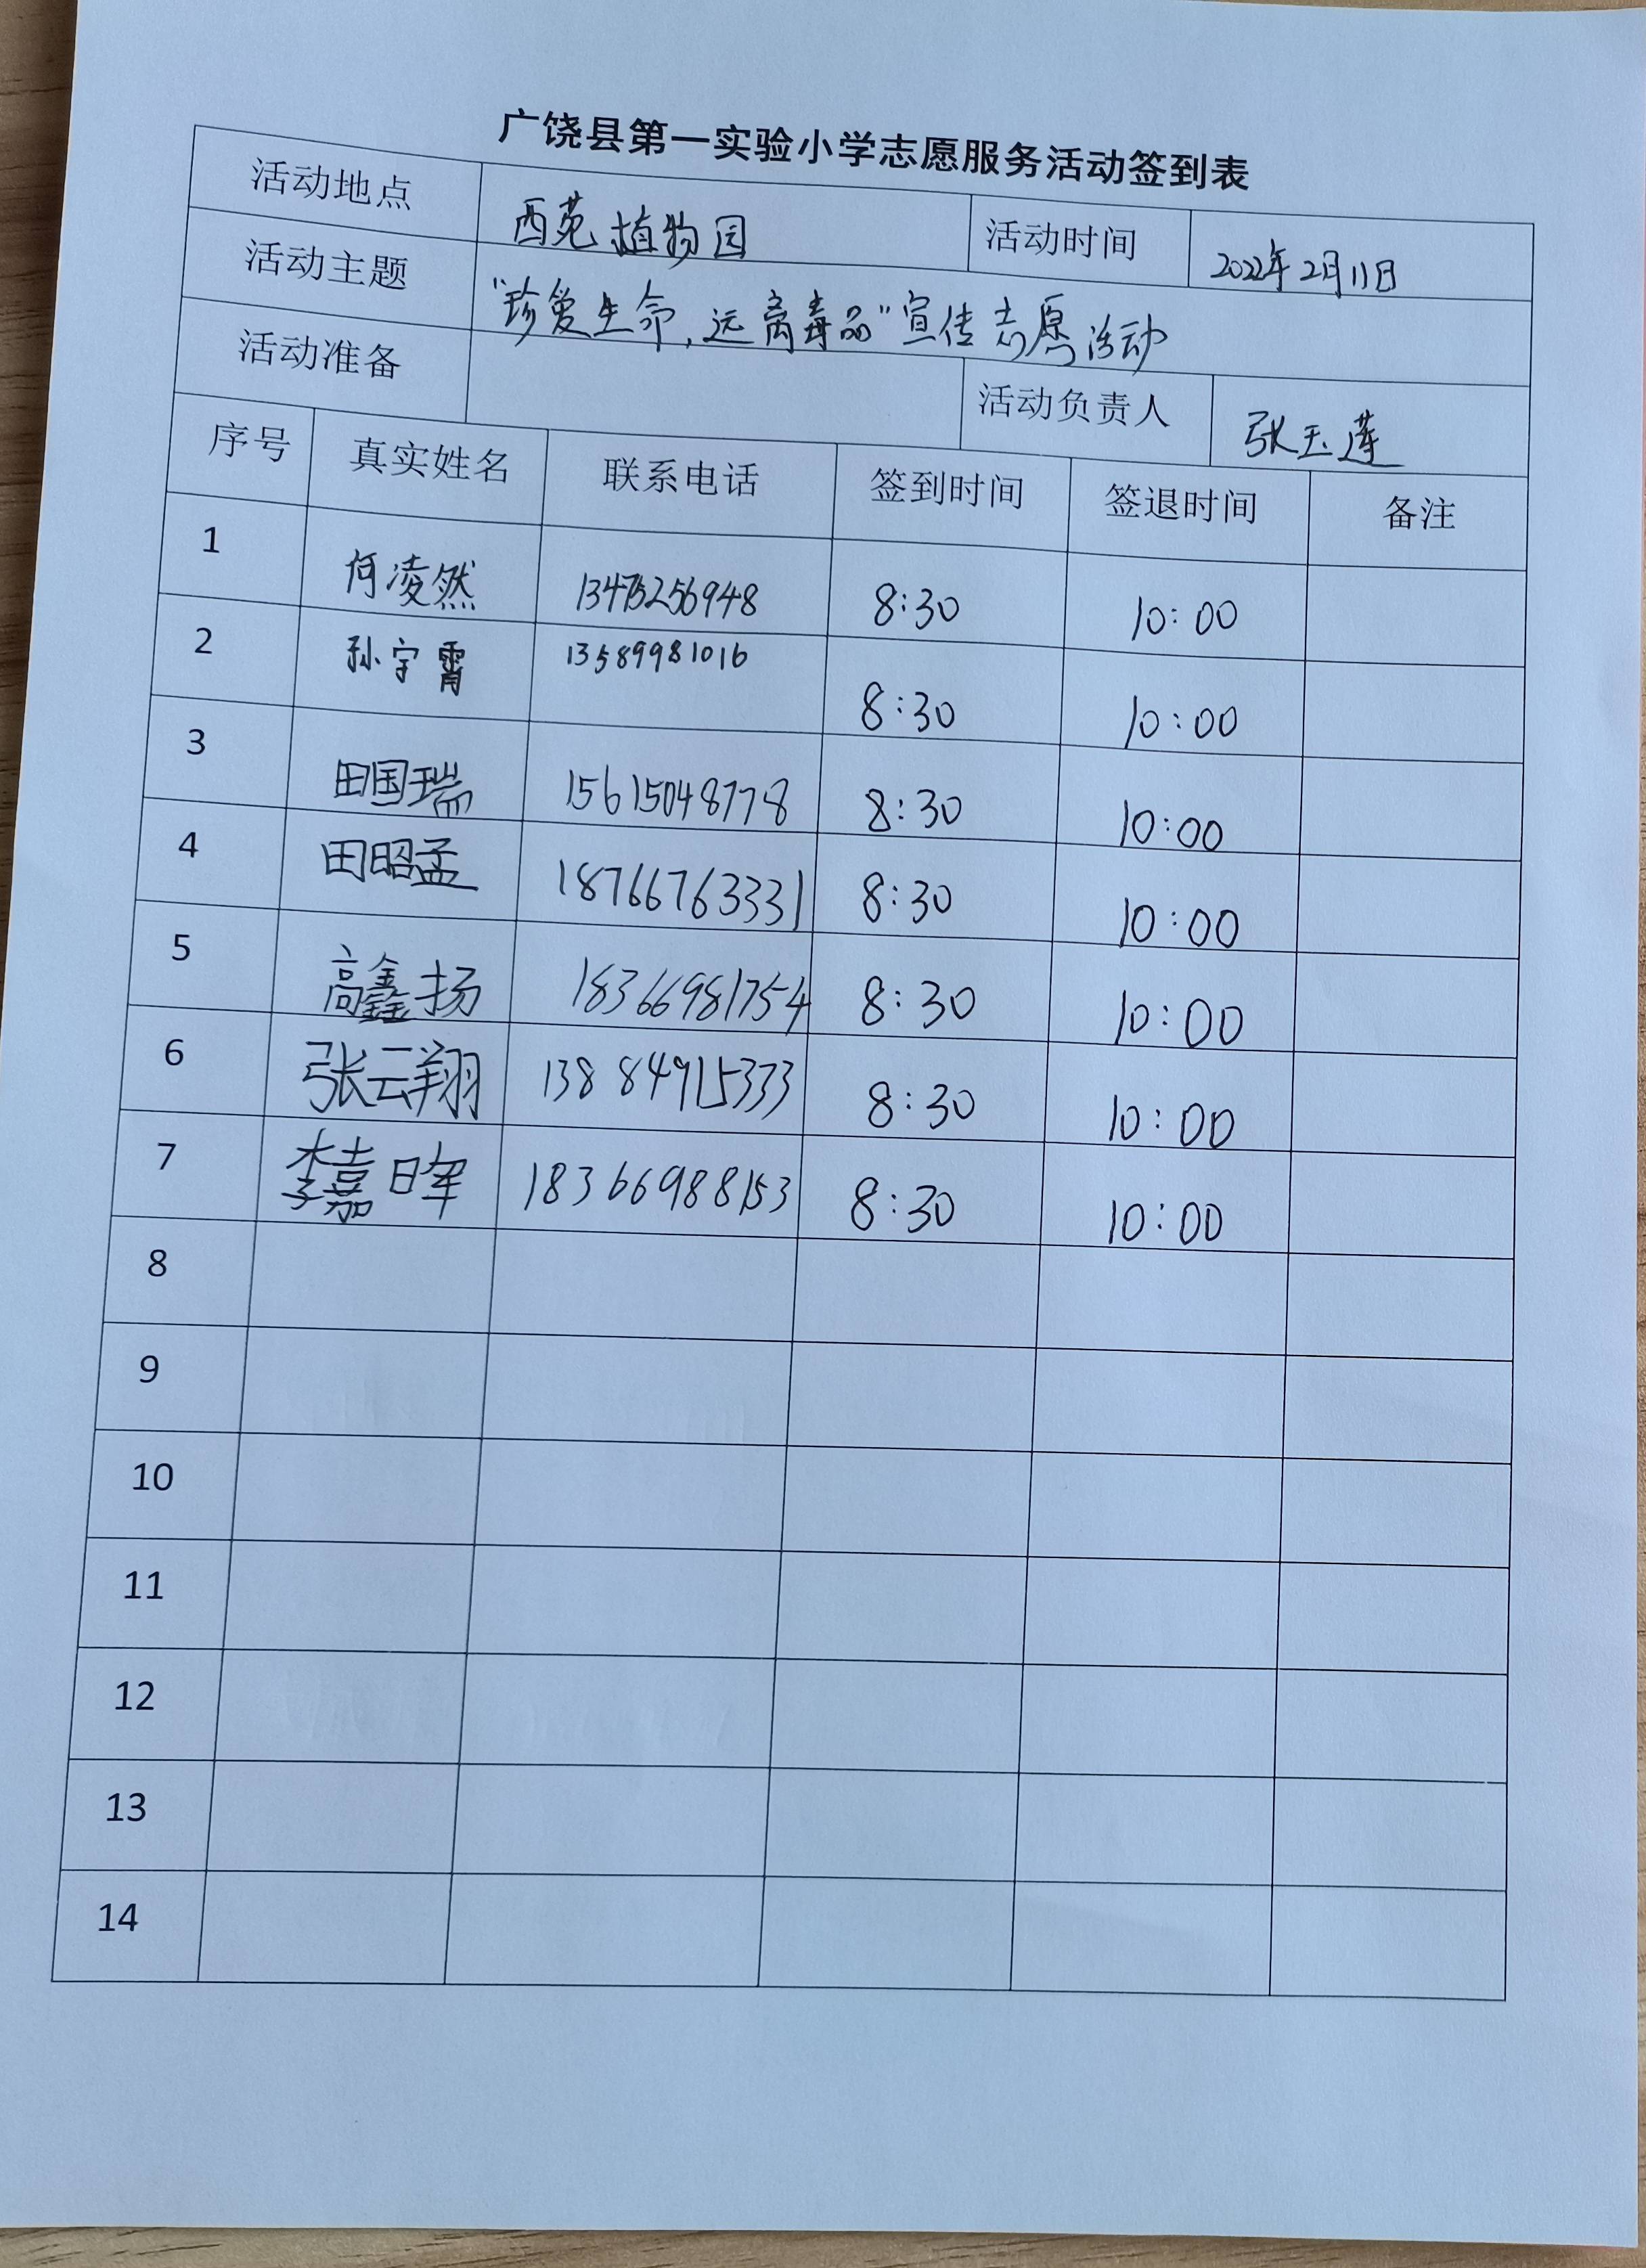 广饶县第一实验小学志愿服务活动签到表
活动地点 西苑植物园 活动时间 2022年2月11日
活动主题 “珍爱生命,远离毒品”宣传志愿活动
活动准备 活动负责人 张玉莲
序号 真实姓名 联系电话 签到时间 签退时间 备注
1 何凌然 13475256948 8:30 10:00
2 孙宇霄 13589981016 8:30 10:00
3 田国瑞 15615048778 8:30 10:00
4 田昭孟 18766763331 8:30 10:00
5 高鑫扬 18366981754 8:30 10:00
6 张云翔 13884915333 8:30 10:00
7 李嘉晖 18366988153 8:30 10:00
8
9
10
11
12
13
14